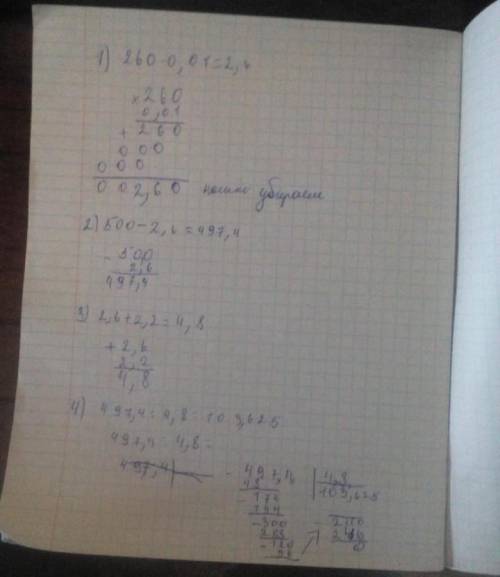 1) 260·0,01=2,6
×260
0,01
+ 260
000
000
002,60 убираем
2) 500-2,6=497,4
- 500
2,6
497,4
3) 2,6+2,2=4,8
+2,6
2,2
4,8
4) 497,4:4,8=103,625
497,4:4,8=
497,4
- 497,4 | 4,8
48 | 103,625
- 174
144
- 300
288
- 120
96
- 240
240
0